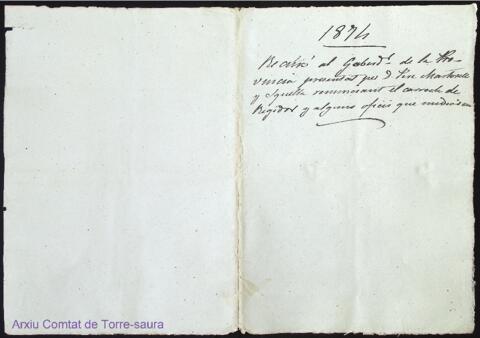 1874
al Gobernr. de la Pro-
vincia presentat per D. Martorell
y renunciant el carrech de
Regidor y alguns oficis que
Arxiu Comtat de Torre-saura